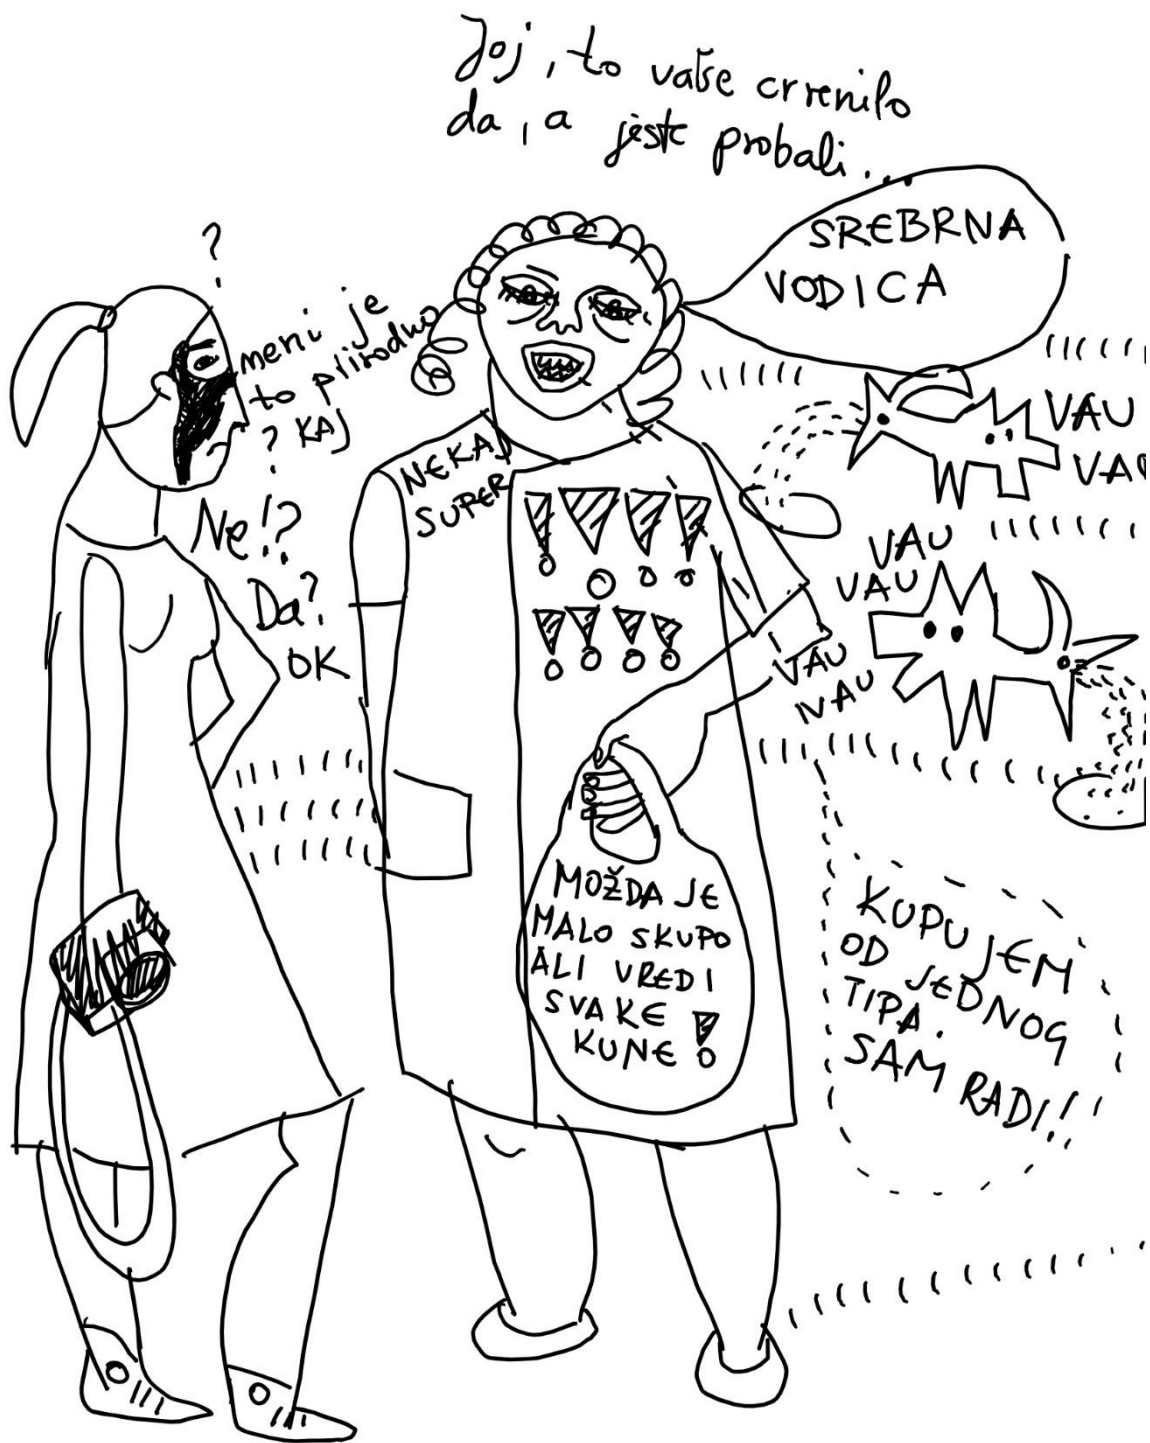 Joj, to vaše crvenilo
da, a jeste probali...
SREBRNA
VODICA
?
meni je
to prirodno
? KAJ
?
Ne!?
Da?
OK
NEKAJ
SUPER
!!!!
!!!!
VAU
VAU
VAU
VAU
VAU
VAU
MOŽDA JE
MALO SKUPO
ALI VREDI
SVAKE
KUNE!
KUPUJEM
OD JEDNOG
TIPA.
SAM RADI!!